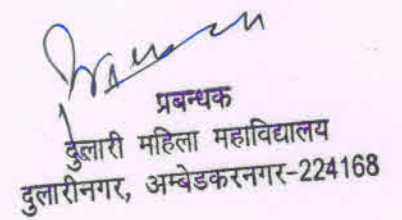 प्रबन्धक
दुलारी महिला महाविद्यालय
दुलारीनगर, अम्बेडकरनगर-224168